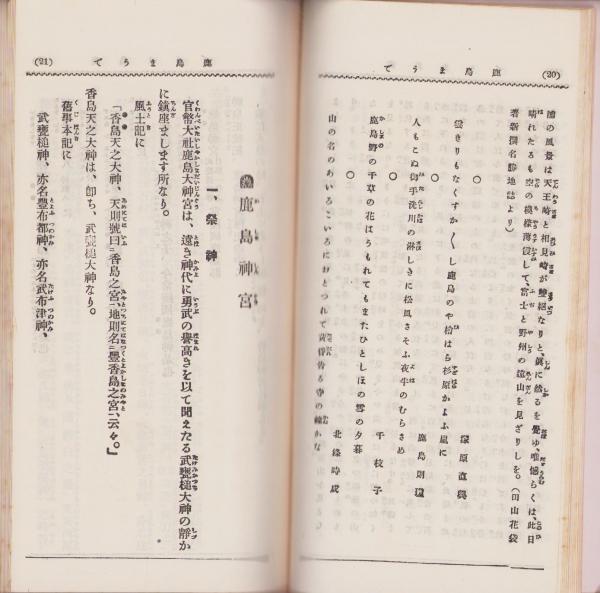 鹿島まうで (20)
湖の風景は天王崎と相見崎が雙絕なりと、眞に然るを覺ゆ、唯憾らくは、此日
晴れたるも空の模樣薄霞して、富士と野州の遠山を見ざりしを。(田山花袋
著新撰名勝地誌より)
○
雲きりもなくすか〴〵し鹿島のや松はら杉原かよふ嵐に
深原直興
○
人もこぬ御手洗川の淋しきに松風さそふ夜半のむらさめ
鹿島則瓊
○
鹿島野の千草の花はうもれてもまたひとしほの雪の夕暮
千枝子
○
山の名のあいろこいろにおとつれて黃昏告る寺の鐘かな
北條時成
鹿島まうで (21)
鹿島神宮
一、祭神
官幣大社鹿島大神宮は、遠き神代に勇武の譽高きを以て聞えたる武甕槌大神の靜か
に鎭座まします所なり。
風土記に
「香島天之大神、天則號曰二香島之宮一、地則名二豐香島之宮一、云々。」
香島天之大神は、卽ち、武甕槌大神なり。
舊事本記に
武甕槌神、亦名豐布都神、亦名武布津神、